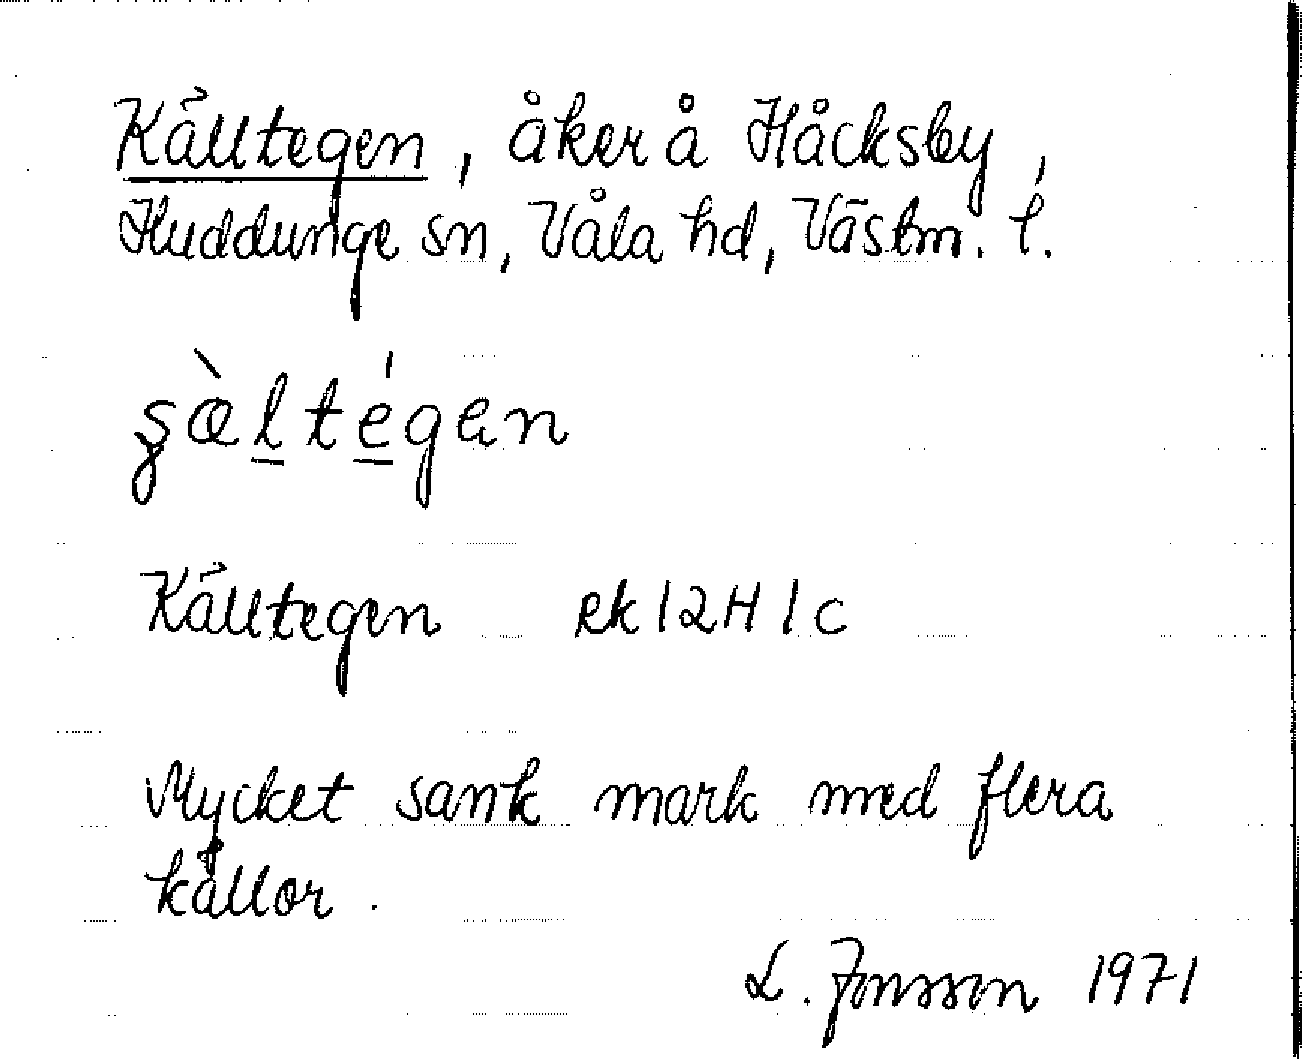 Källtegen, åker å Häcksby,
Huddunge sn, Våla hd, Västm. l.
Källtegen ek 12H 1c
Mycket sank mark med flera
källor.
L. Jonsson 1971